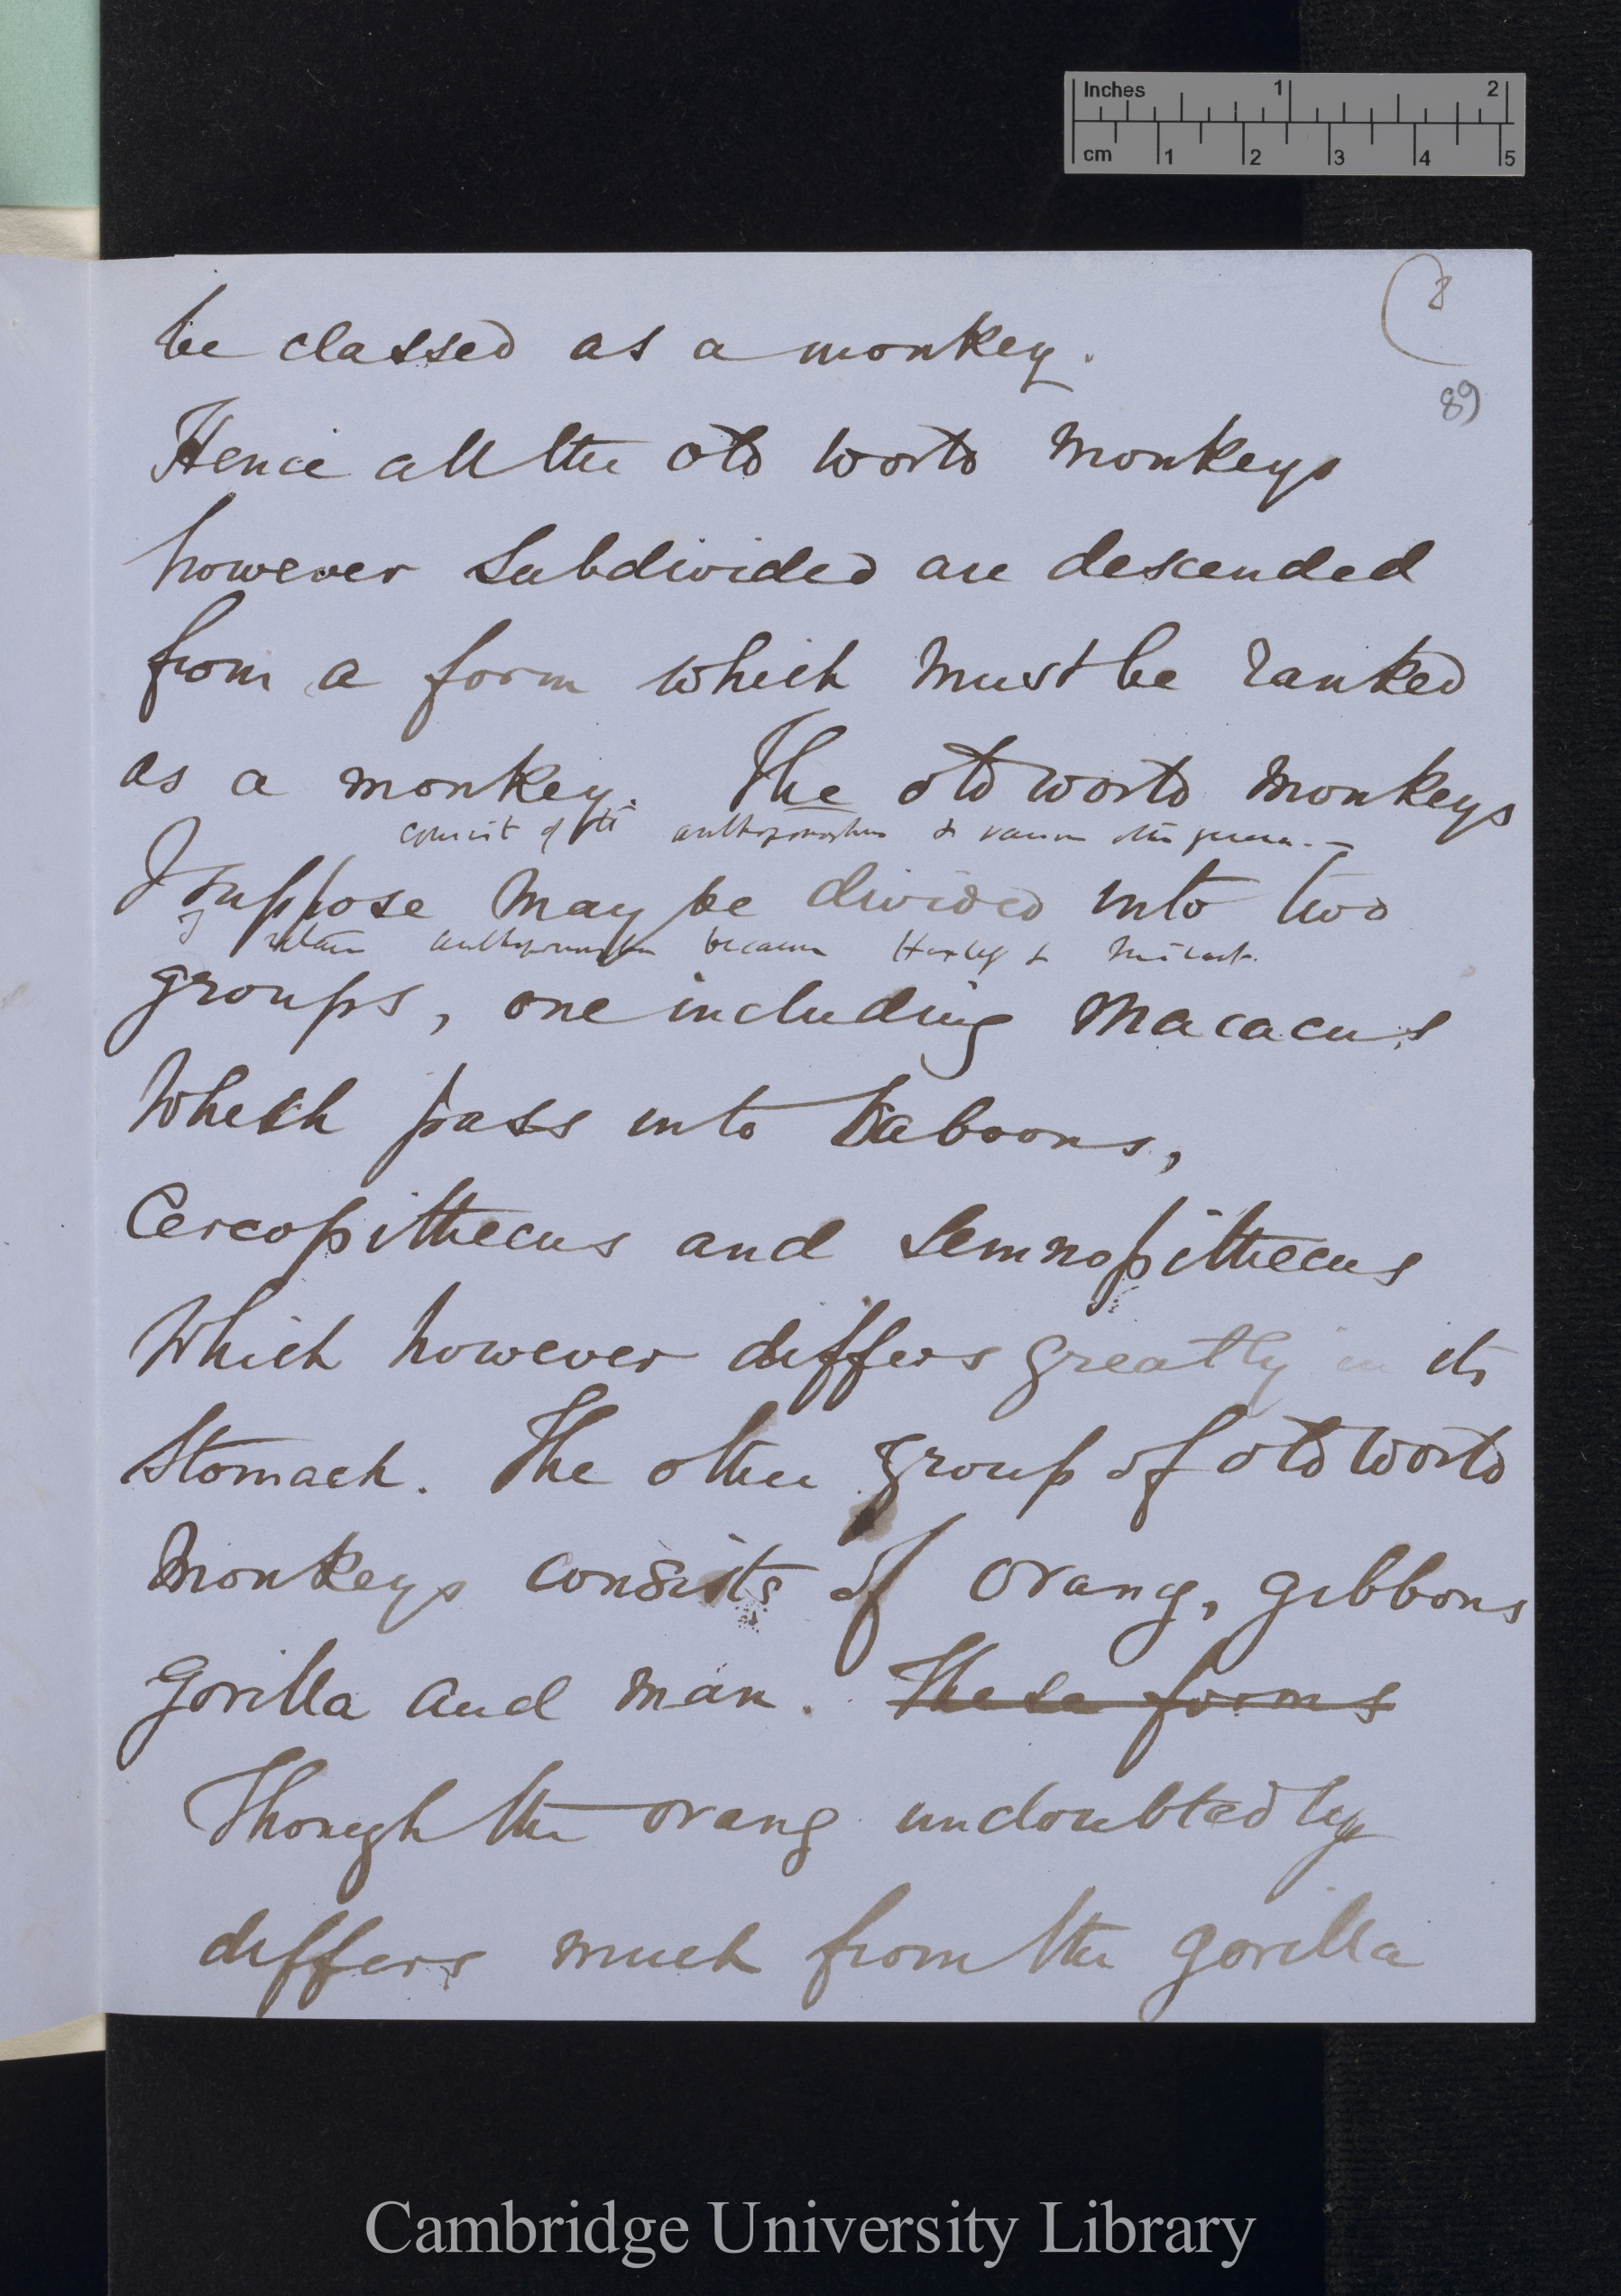 Inches 1 2
cm 1 2 3 4 5
8
89
be classed as a monkey.
Hence all the old world monkeys
however subdivided are descended
from a form which must be ranked
as a monkey. The old world monkeys
consist of the anthropomorphus & various other genera.—
I suppose may be divided into two
I retain anthropomorphus because Huxley & Mivart.
groups, one including Macacus
which pass into baboons,
Cercopithecus and Semnopithecus
which however differs greatly in its
stomach. The other group of old world
monkeys consists of orang, gibbons
gorilla and man. These forms
Though the orang undoubtedly
differs much from the gorilla
Cambridge University Library